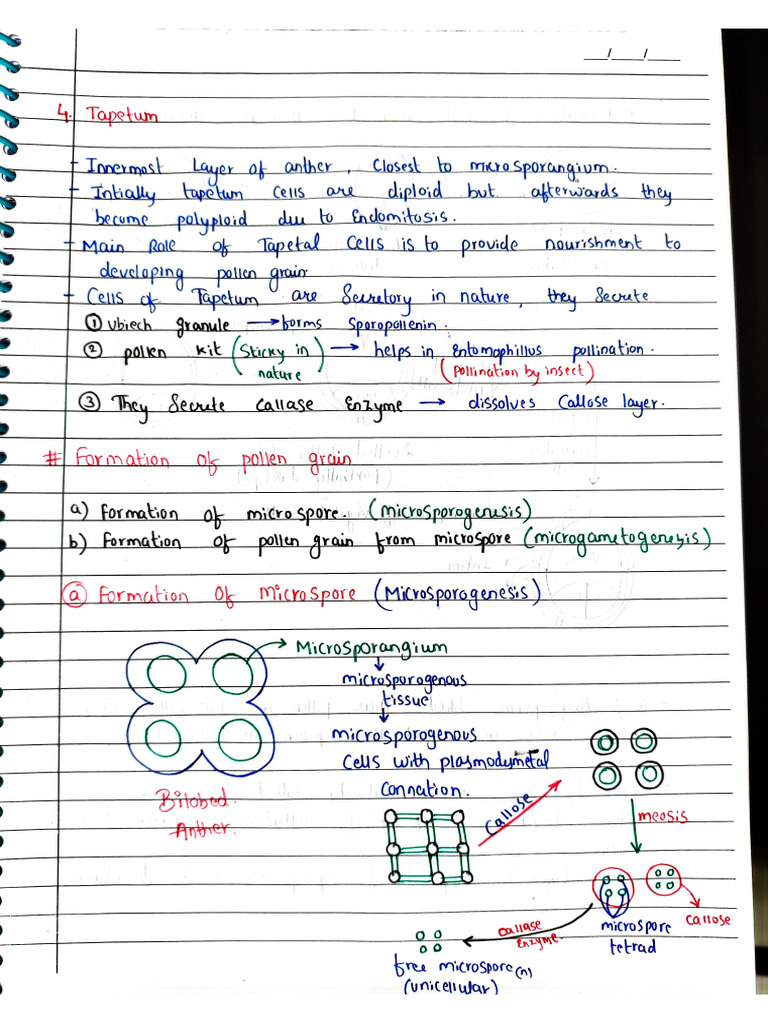 __/__/__
4. Tapetum
- Innermost Layer of anther, Closest to microsporangium.
- Intially tapetum cells are diploid but afterwards they
become polyploid due to Endomitosis.
- Main Role of Tapetal Cells is to provide nourishment to
developing pollen grain
- Cells of Tapetum are Secretory in nature, they Secrete
① Ubiech granule → forms Sporopollenin.
② pollen kit (Sticky in nature) → helps in Entomophillus pollination.
(Pollination by insect)
③ They Secrete callase Enzyme → dissolves Callose layer.
# Formation of pollen grain
a) Formation of microspore. (Microsporogenesis)
b) Formation of pollen grain from microspore (microgametogenesis)
ⓐ Formation of Microspore (Microsporogenesis)
→ Microsporangium
↓
microsporogenous
tissue
↓
microsporogenous
Cells with plasmodymetal
Connation.
Bilobed
Anther.
Callose
meosis
microspore
tetrad
callose
callase
Enzyme.
free microspore (n)
(unicellular)